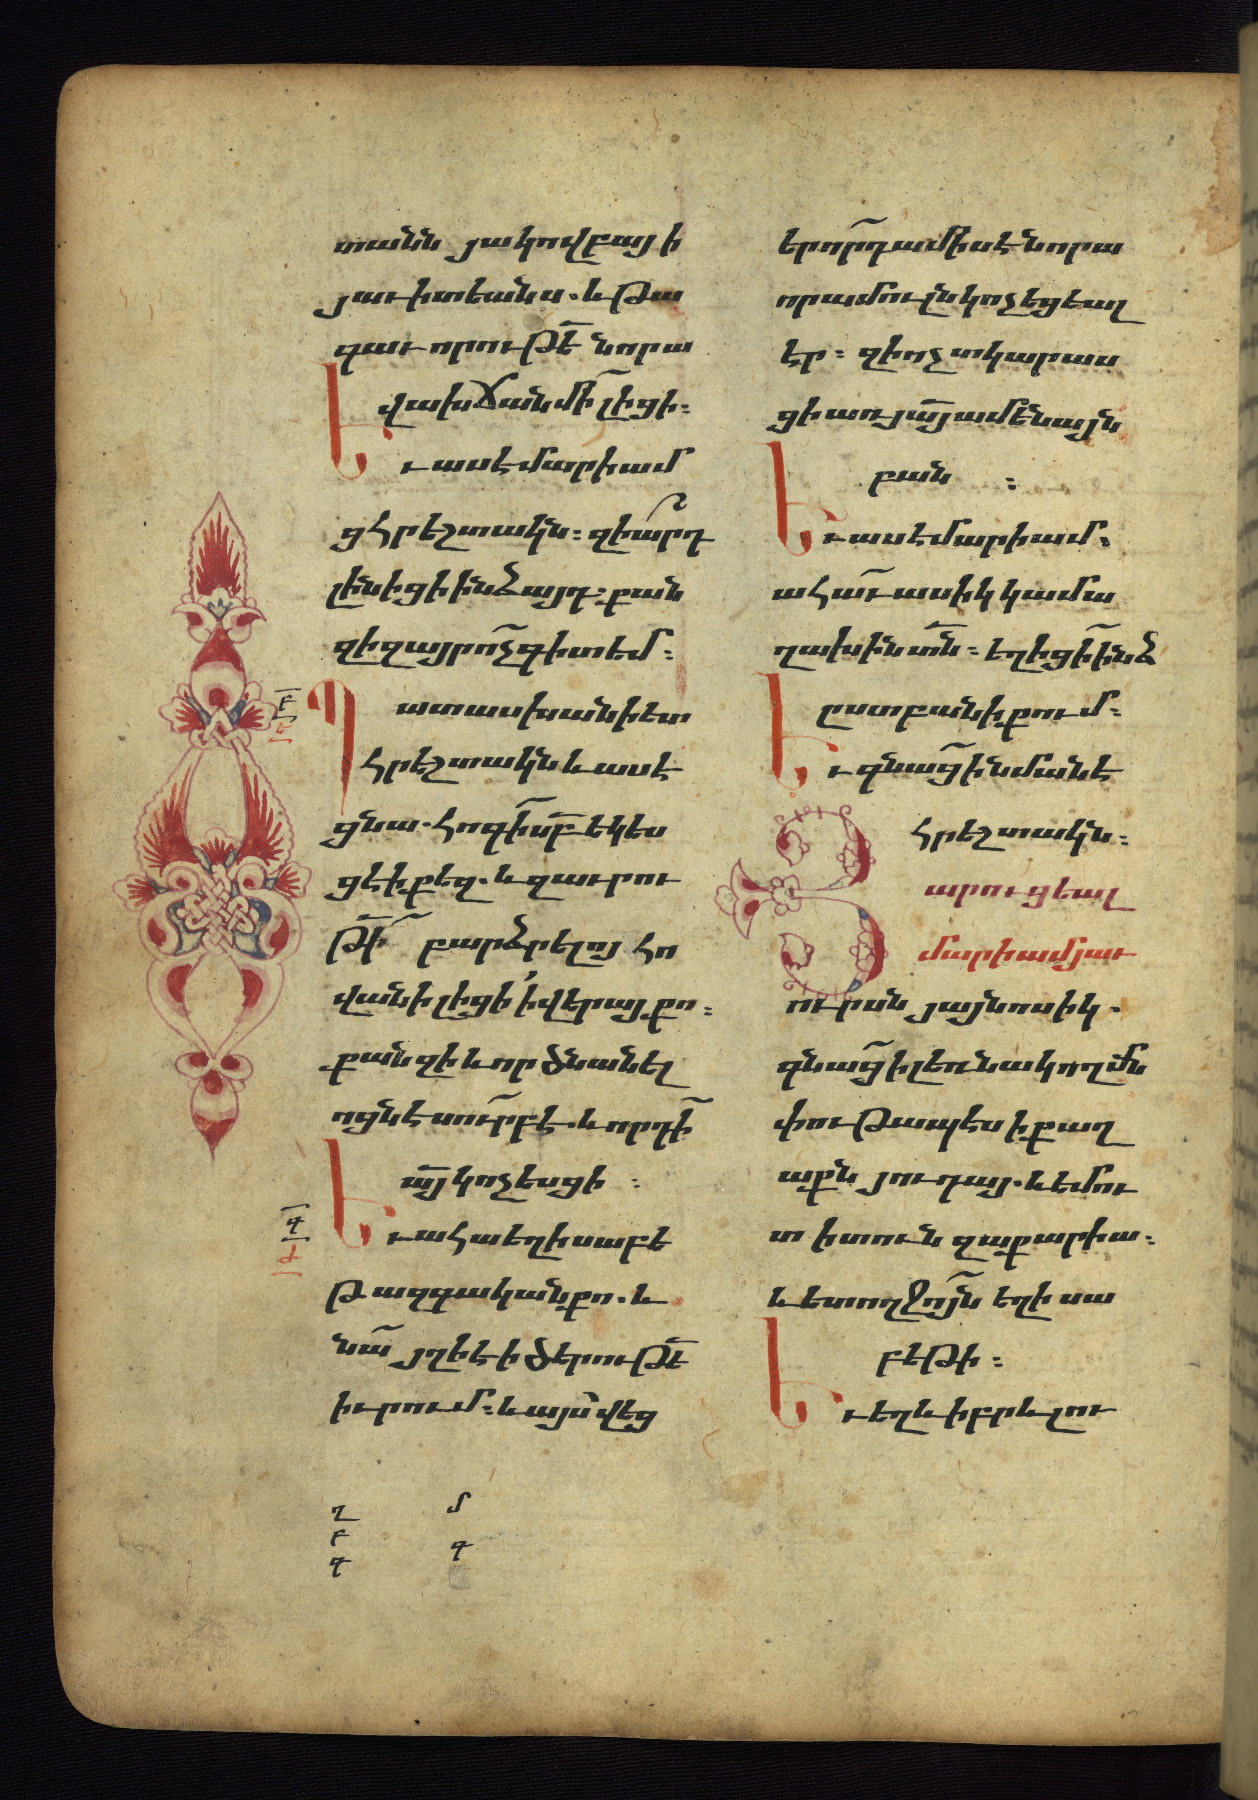 տանն յակովբայ ի
յաւիտեանս. և թա
գաւորութե՟ նորա
վախճան մի՟ լիցի։
Եւ ասէ մարիամ
ցհրեշտակն։ զիա՟րդ
լինիցի ինձ այդ. քան
զի զայր ո՟չ գիտեմ։
բ
Պատասխանի ետ
հրեշտակն և ասէ
ցնա. հոգի՟ սբ՟ եկես
ցէ ի քեզ. և զաւրու
թի՟ բարձրելոյ հո
վանի լիցի ի վերայ քո։
քանզի և որ ծնանել
ոցն է սուրբ է. և որդի՟
ա՟յ կոչեսցի։
գ
Եւ ահա եղիսաբե
թ ազգական քո. և
նա՟ յղի է ի ծերութե՟
իւրում։ և այս վեց
ղ մ
բ
գ գ
երո՟րդ ամիս է նորա
որ ամուլն կոչեցեալ
էր։ զի ոչ տկարաս
ցի առ յա՟յ ամե՟նայն
բան։
Եւ ասէ մարիամ.
ահա՟ւասիկ կամ ա
ղախին տն՟։ եղիցի՟ ինձ
ըստ բանի քում։
Եւ գնաց՟ ի նմանէ
հրեշտակն։
Յարուցեալ
մարիամ յաւ
ուրսն յայնոսիկ.
գնաց՟ ի լեռնակողմն
փութապէս ի քաղ
աքն յուդայ. և եմու
տ ի տուն զաքարիա.
և ետ ողջո՟յն եղիսա
բեթի։
Եւ եղև իբրև լու